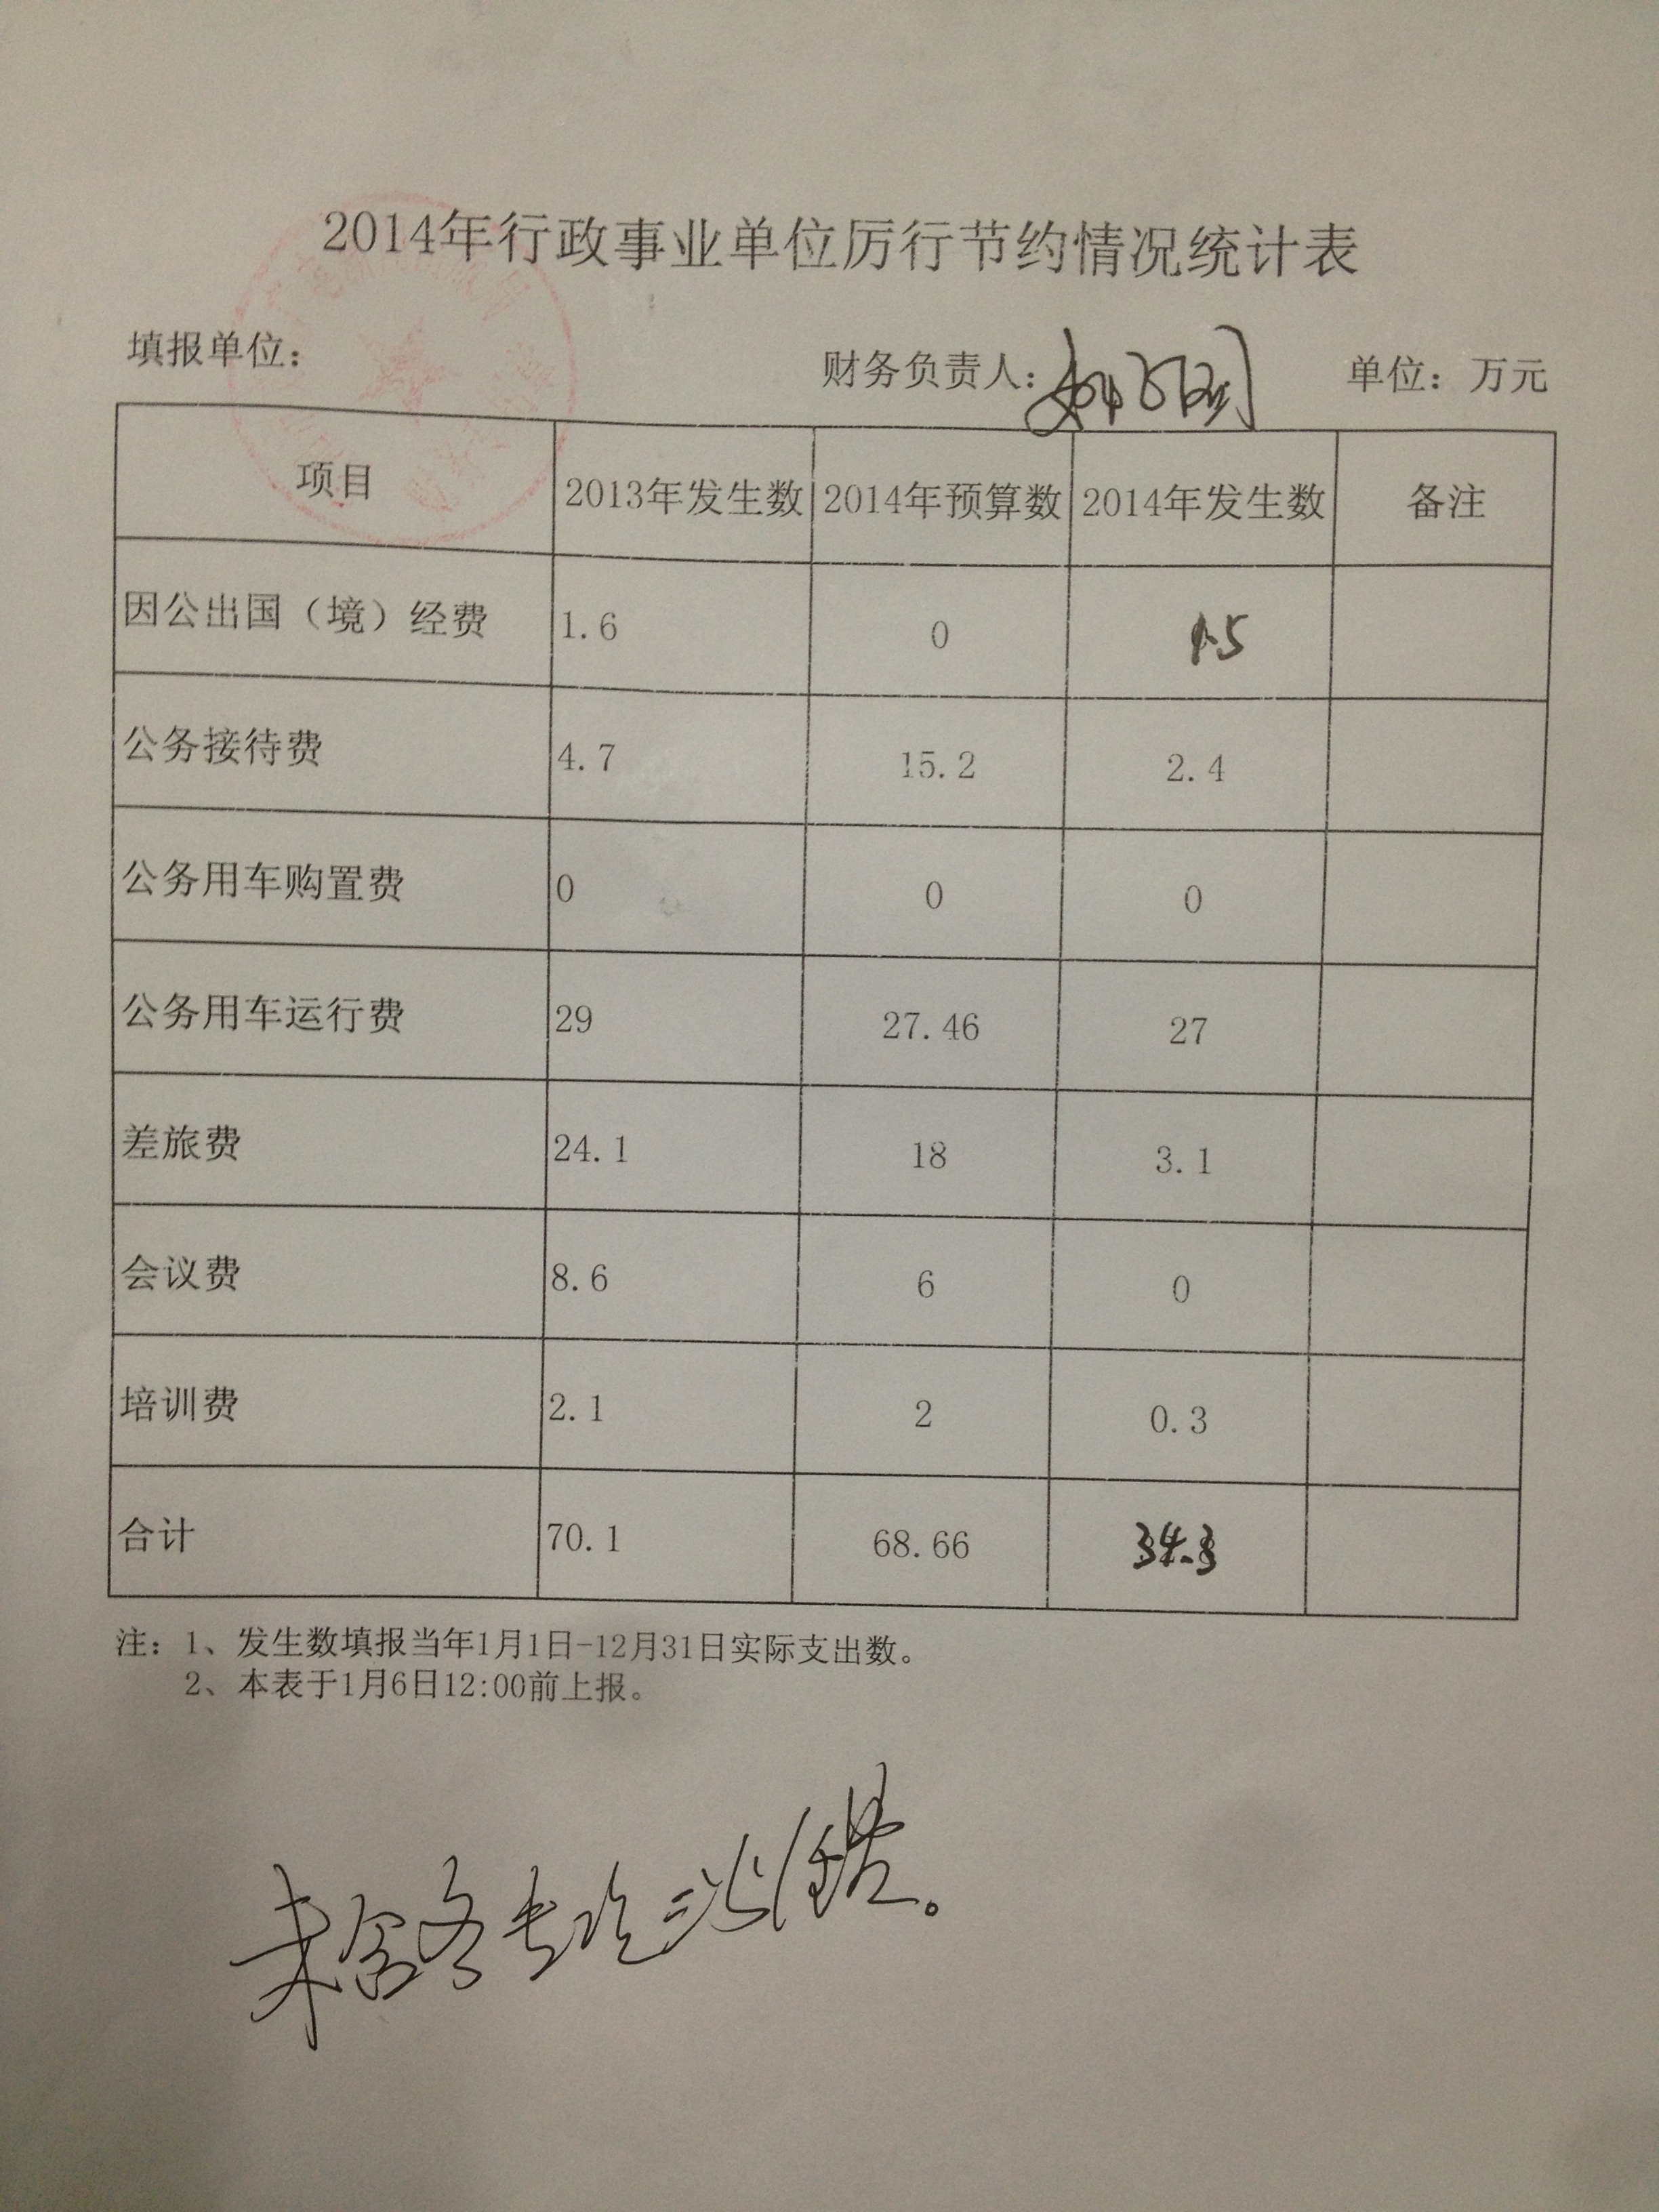 2014年行政事业单位厉行节约情况统计表
填报单位： 财务负责人： 单位：万元
项目 2013年发生数 2014年预算数 2014年发生数 备注
因公出国（境）经费 1.6 0 1.5
公务接待费 4.7 15.2 2.4
公务用车购置费 0 0 0
公务用车运行费 29 27.46 27
差旅费 24.1 18 3.1
会议费 8.6 6 0
培训费 2.1 2 0.3
合计 70.1 68.66 34.3
注：1、发生数填报当年1月1日-12月31日实际支出数。
2、本表于1月6日12:00前上报。
未含各专项